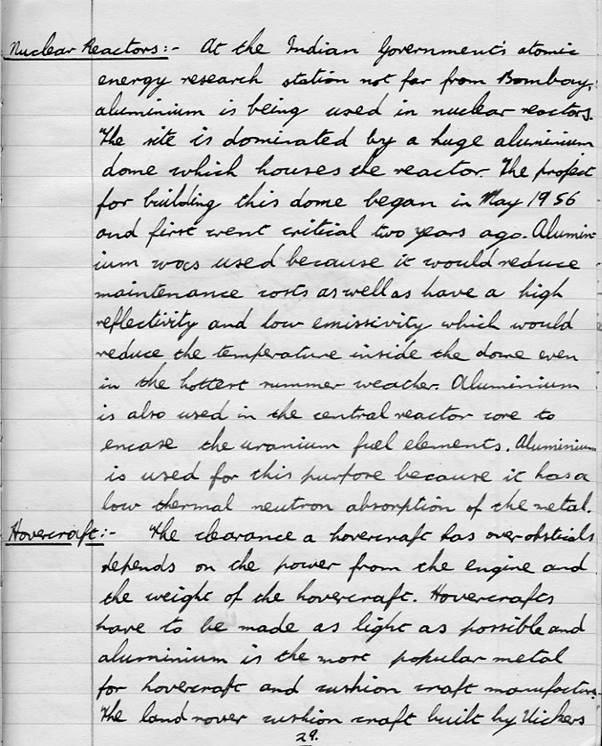 Nuclear Reactors:- At the Indian Government's atomic
energy research station not far from Bombay,
aluminium is being used in nuclear reactors.
The site is dominated by a huge aluminium
dome which houses the reactor. The project
for building this dome began in May 1956
and first went critical two years ago. Alumin-
ium was used because it would reduce
maintenance costs as well as have a high
reflectivity and low emissivity which would
reduce the temperature inside the dome even
in the hottest summer weather. Aluminium
is also used in the central reactor core to
encase the uranium fuel elements. Aluminium
is used for this purpose because it has a
low thermal neutron absorption of the metal.
Hovercraft:- The clearance a hovercraft has over obsticals
depends on the power from the engine and
the weight of the hovercraft. Hovercrafts
have to be made as light as possible and
aluminium is the most popular metal
for hovercraft and cushion craft manufacture.
The land rover cushion craft built by Vickers
29.